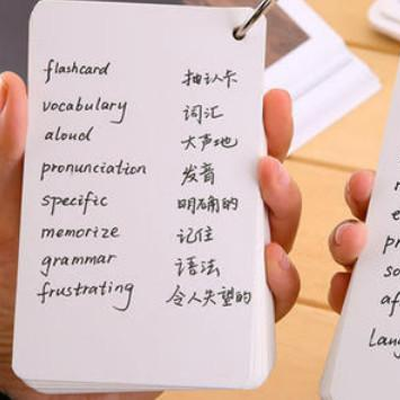 flashcard 抽认卡
vocabulary 词汇
aloud 大声地
pronunciation 发音
specific 明确的
memorize 记住
grammar 语法
frustrating 令人失望的